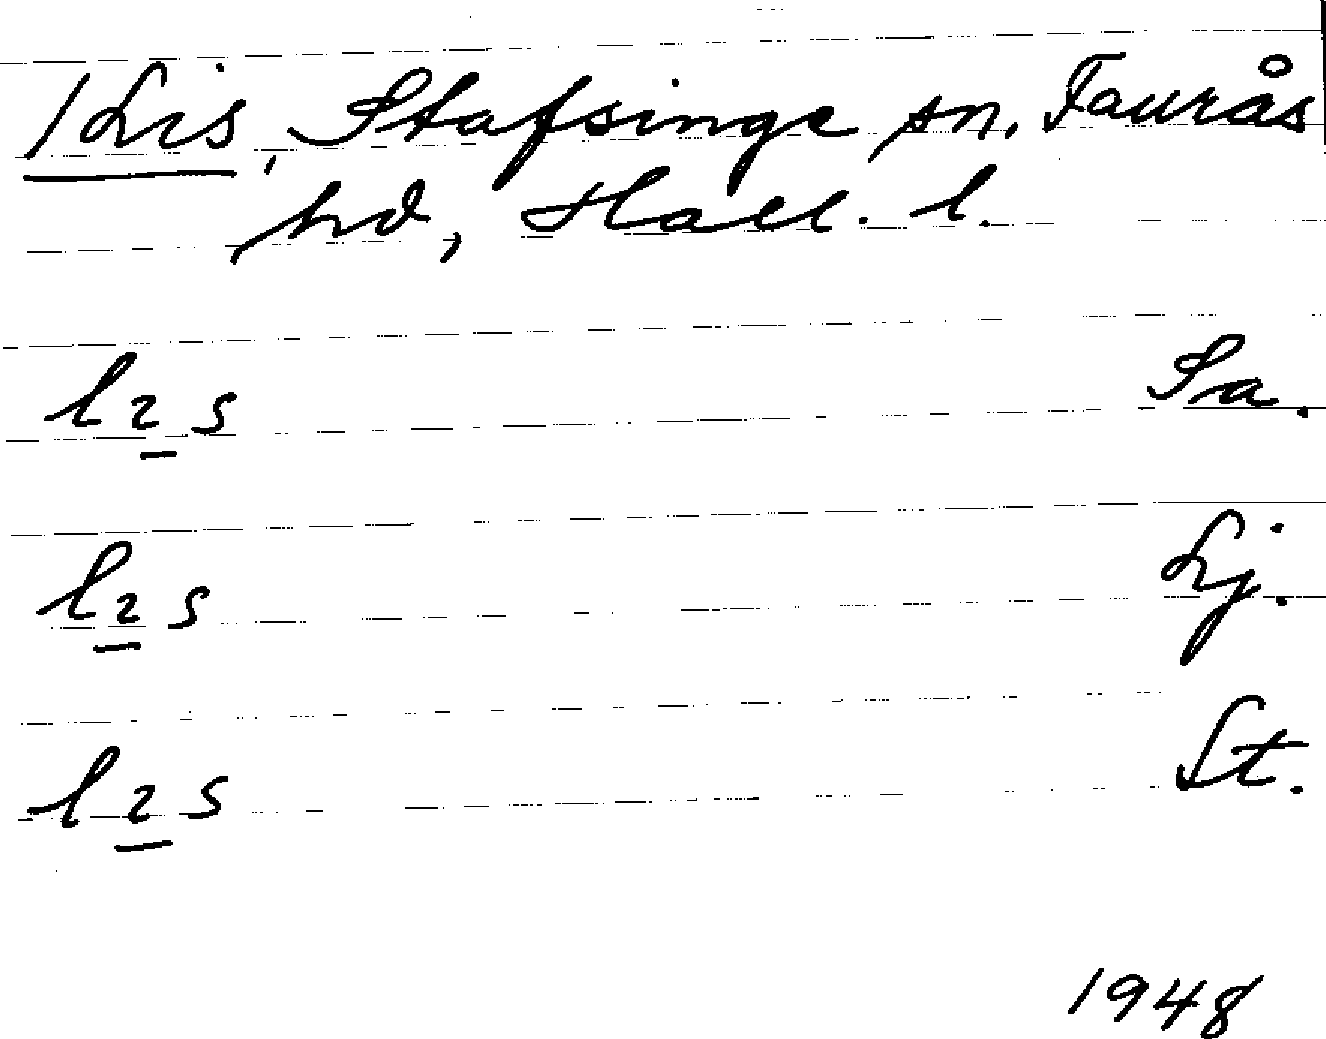 /Lis, Stafsinge sn. Faurås
hd, Hall. l.
lɩs Sa.
lɩs Lj.
lɩs St.
1948